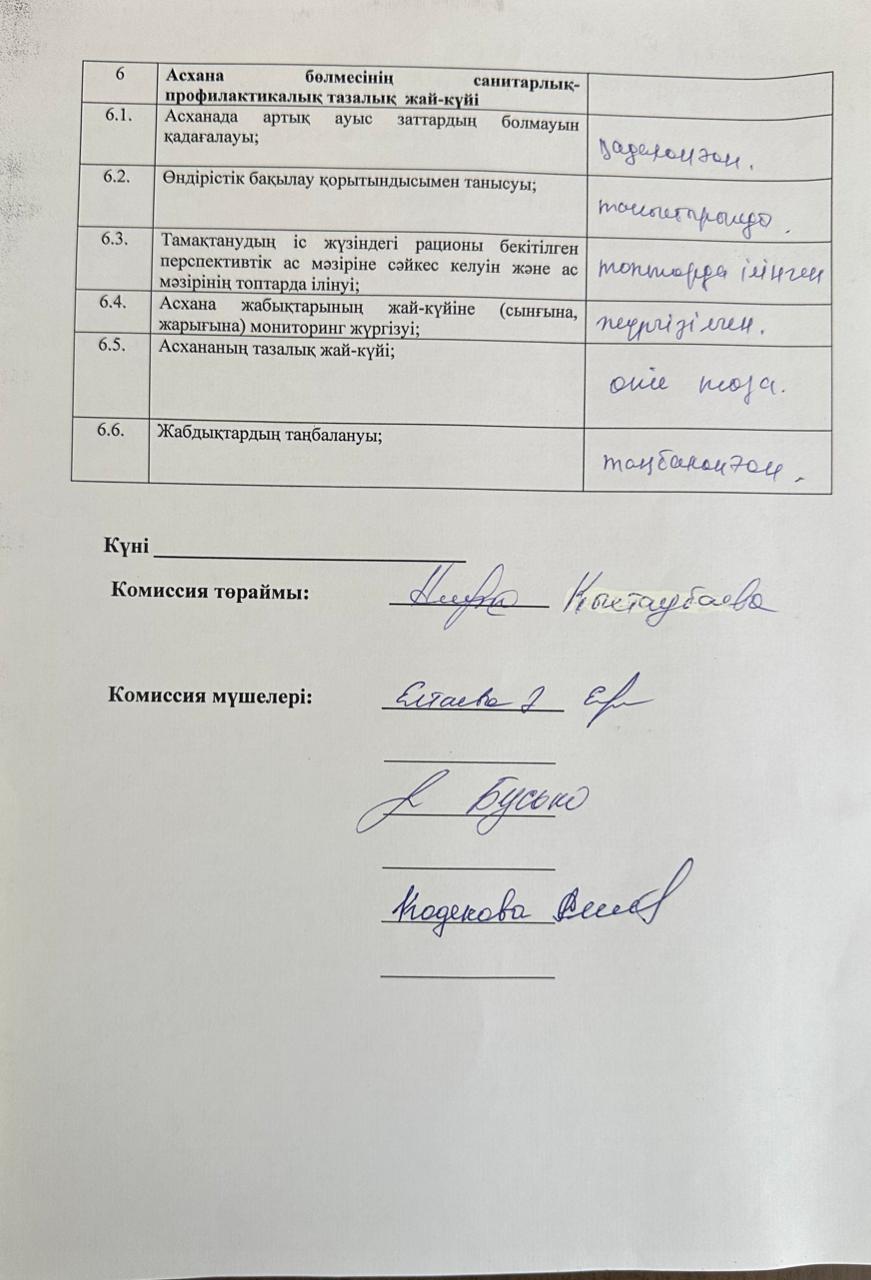 6 Асхана бөлмесінің санитарлық-
профилактикалық тазалық жай-күйі
6.1. Асханада артық ауыс заттардың болмауын
қадағалауы; қадағаланған.
6.2. Өндірістік бақылау қорытындысымен танысуы;
таныстырылды.
6.3. Тамақтанудың іс жүзіндегі рационы бекітілген
перспективтік ас мәзіріне сәйкес келуін және ас топтарда ілінген
мәзірінің топтарда ілінуі;
6.4. Асхана жабықтарының жай-күйіне (сынғына,
жарығына) мониторинг жүргізуі; жүргізілген.
6.5. Асхананың тазалық жай-күйі;
таза.
6.6. Жабдықтардың таңбалануы;
таңбаланған.
Күні
Комиссия төраймы: Кыстаубаева
Комиссия мүшелері: Елтаева
Бусько
Кодекова